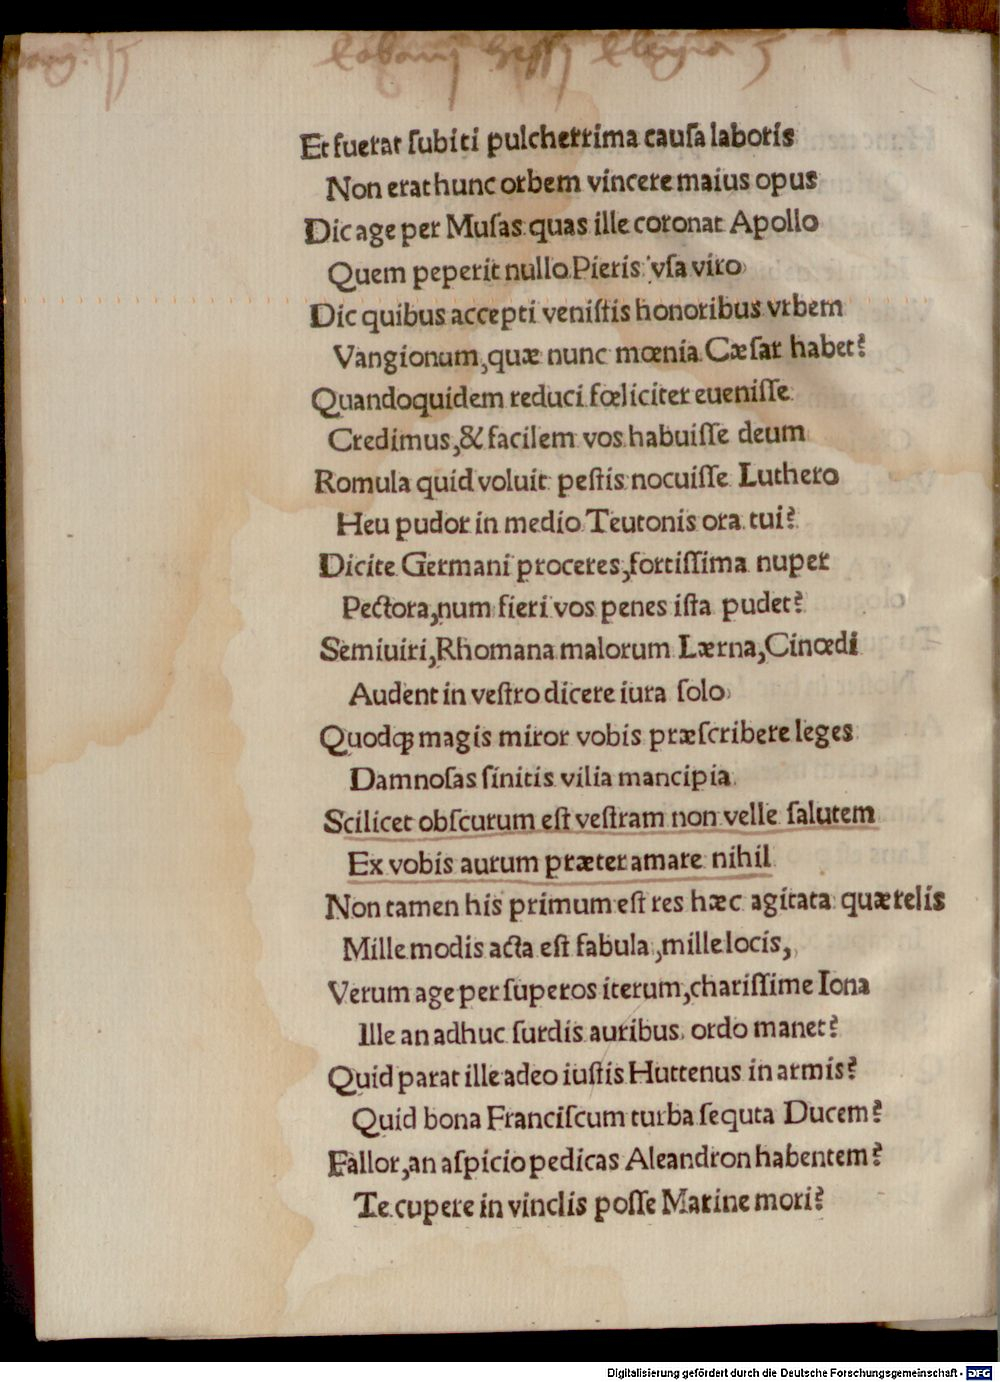 Eobani Hessi Elegia 5
Et fuerat ſubiti pulcherrima cauſa laboris
Non erat hunc orbem vincere maius opus
Dic age per Muſas quas ille coronat Apollo
Quem peperit nullo Pieris vſa viro
Dic quibus accepti veniſtis honoribus vrbem
Vangionum, quæ nunc mœnia Cæſar habet?
Quandoquidem reduci fœliciter eueniſſe
Credimus, & facilem vos habuiſſe deum
Romula quid voluit peſtis nocuiſſe Luthero
Heu pudor in medio Teutonis ora tui?
Dicite Germani proceres, fortiſſima nuper
Pectora, num fieri vos penes iſta pudet?
Semiuiri, Rhomana malorum Lærna, Cinœdi
Audent in veſtro dicere iura ſolo
Quodqꝫ magis miror vobis præſcribere leges
Damnoſas ſinitis vilia mancipia
Scilicet obſcurum eſt veſtram non velle ſalutem
Ex vobis aurum præter amare nihil
Non tamen his primum eſt res hæc agitata quærelis
Mille modis acta eſt fabula, mille locis,
Verum age per ſuperos iterum, chariſſime Iona
Ille an adhuc ſurdis auribus ordo manet?
Quid parat ille adeo iuſtis Huttenus in armis?
Quid bona Franciſcum turba ſequta Ducem?
Fallor, an aſpicio pedicas Aleandron habentem?
Te cupere in vinclis poſſe Marine mori?
Digitalisierung gefördert durch die Deutsche Forschungsgemeinschaft - DFG